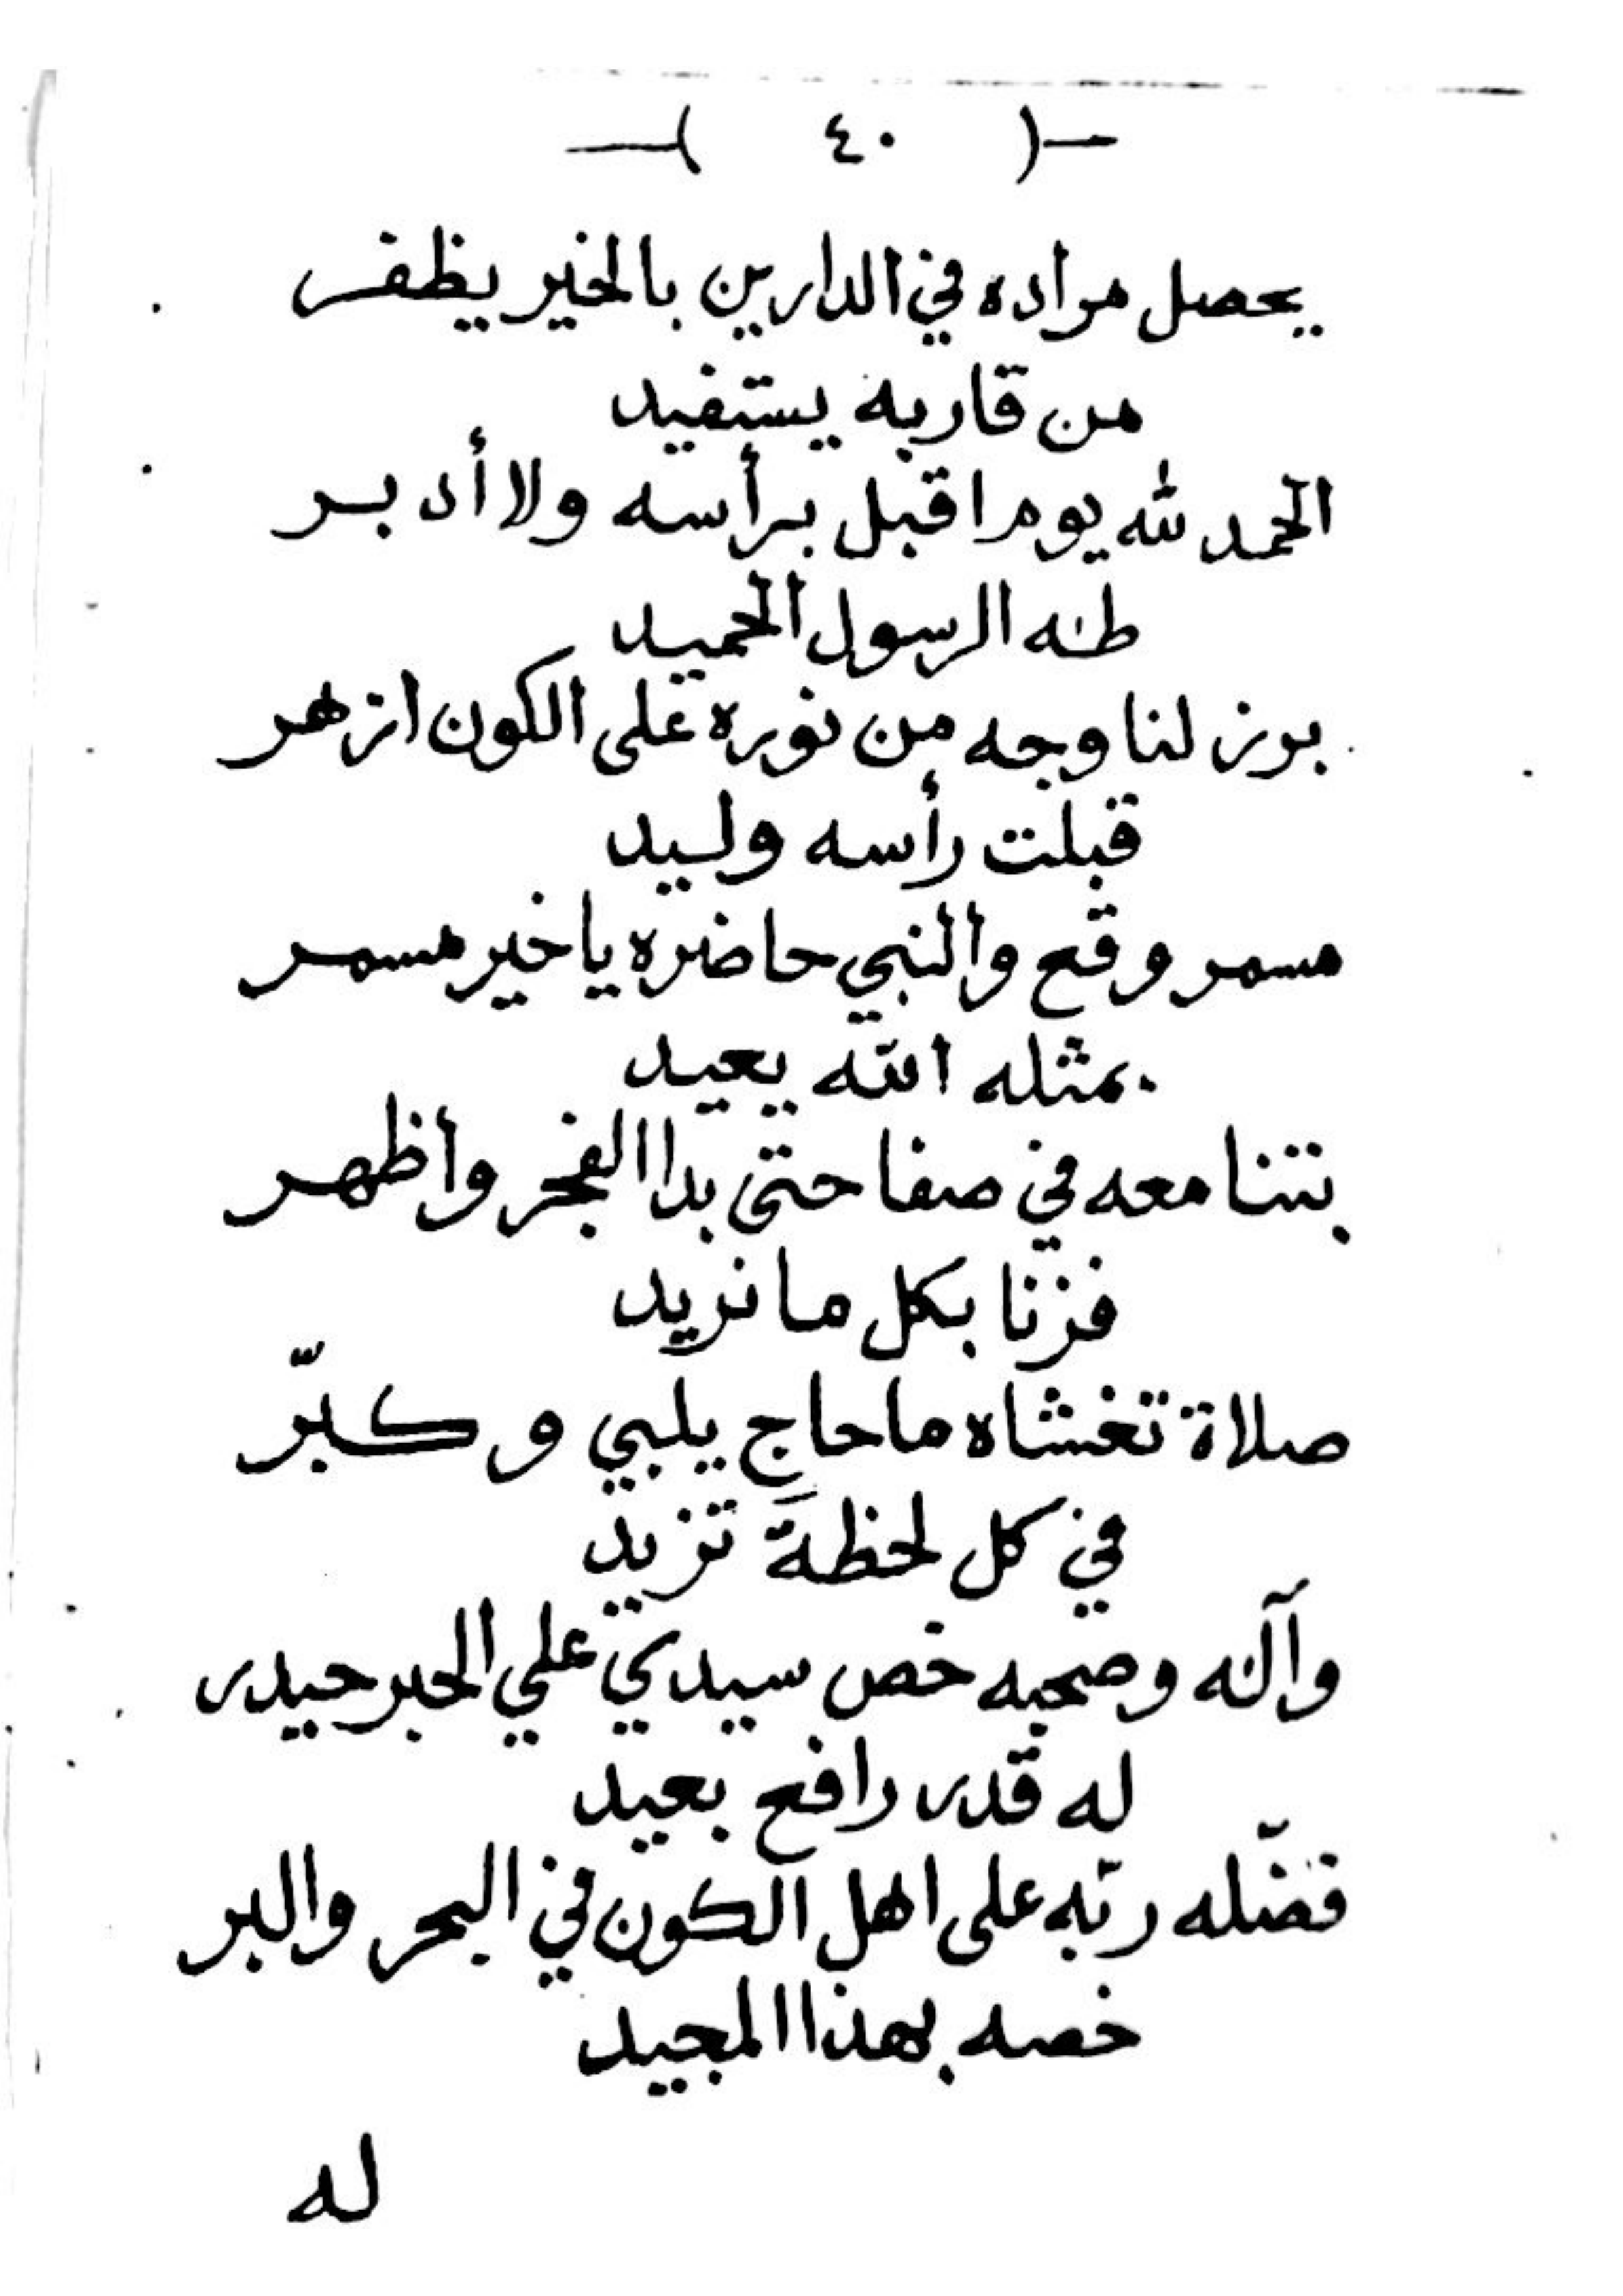 —( ٤٠ )—
يحصل مراده في الدارين بالخير يظفر
من قاربه يستفيد
الحمد لله يوم اقبل برأسه ولا أدبر
طه الرسول الحميد
برز لنا وجه من نوره على الكون ازهر
قبلت رأسه وليد
مسمر وقع والنبي حاضره يا خير مسمر
بمثله الله يعيد
بتنا معه في صفا حتى بدا الفجر واظهر
فزنا بكل ما نريد
صلاة تغشاه ما حاج يلبي وكبّر
في كل لحظة تزيد
وآله وصحبه خص سيدي علي الحبر حيدر
له قدر رافع بعيد
فضّله ربّه على اهل الكون في البحر والبر
خصه بهذا المجيد
له